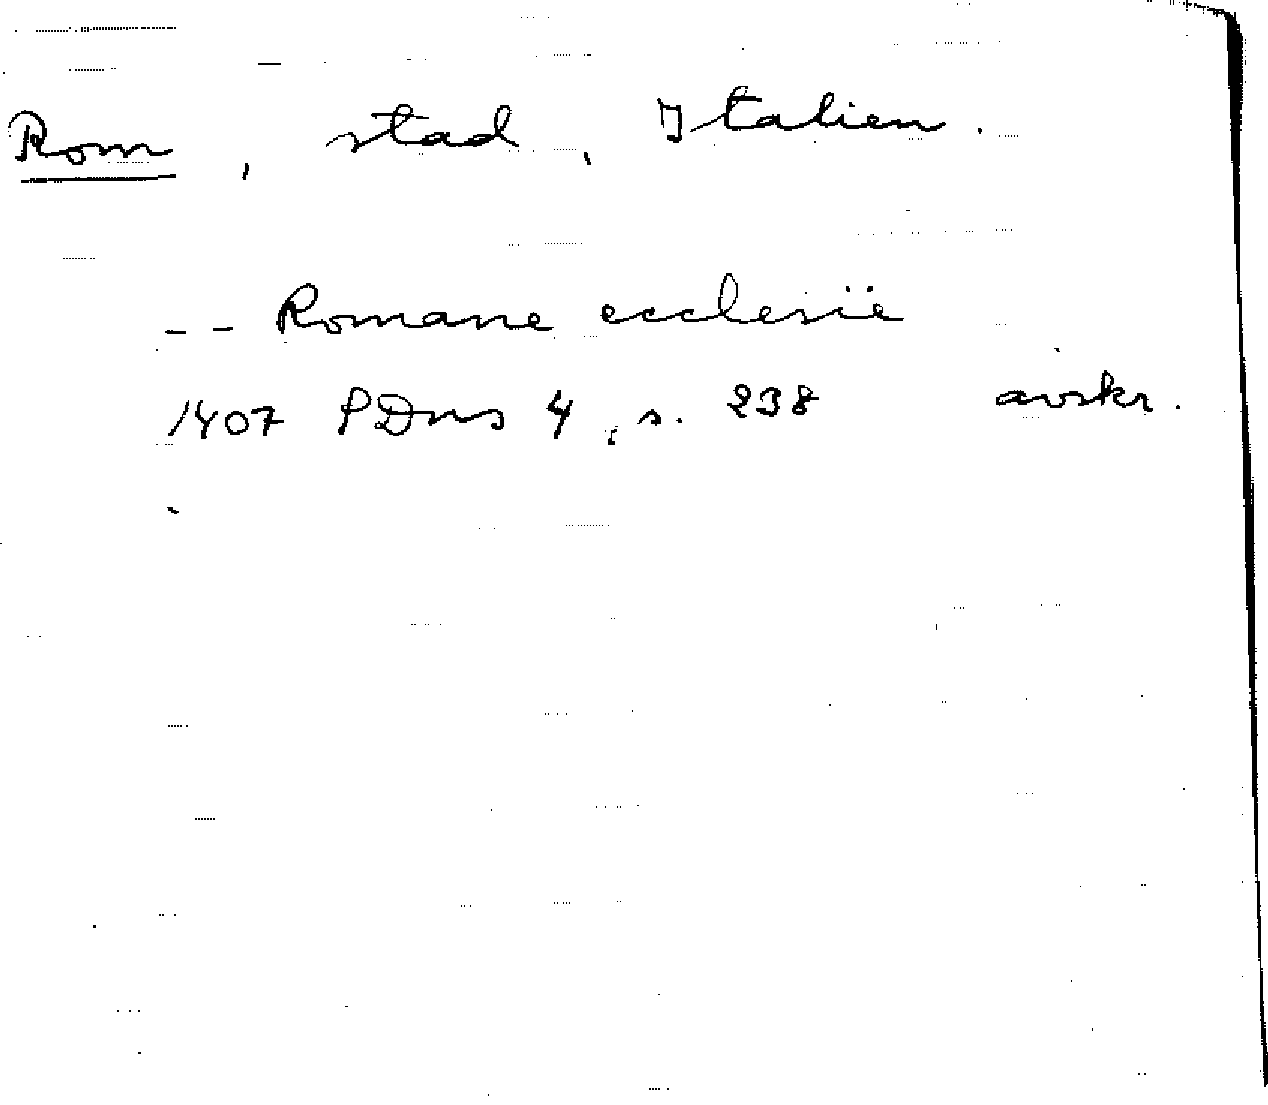 Rom, stad, Italien.
-- Romane ecclesie
1407 SDns 4, s. 238 avskr.